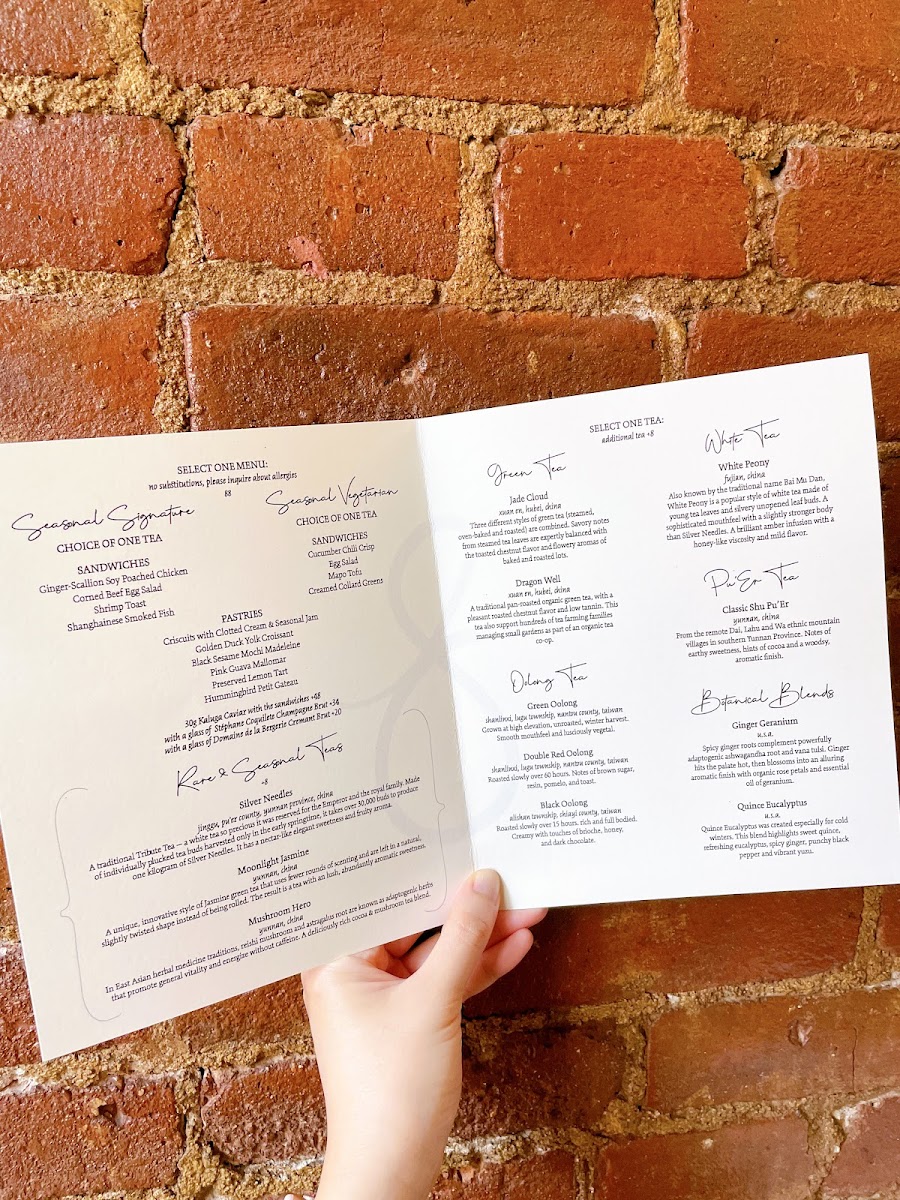 SELECT ONE MENU:
no substitutions, please inquire about allergies
88
Seasonal Signature
CHOICE OF ONE TEA
SANDWICHES
Ginger-Scallion Soy Poached Chicken
Corned Beef Egg Salad
Shrimp Toast
Shanghainese Smoked Fish
Seasonal Vegetarian
CHOICE OF ONE TEA
SANDWICHES
Cucumber Chili Crisp
Egg Salad
Mapo Tofu
Creamed Collard Greens
PASTRIES
Criscuits with Clotted Cream & Seasonal Jam
Golden Duck Yolk Croissant
Black Sesame Mochi Madeleine
Pink Guava Mallomar
Preserved Lemon Tart
Hummingbird Petit Gateau
30g Kaluga Caviar with the sandwiches +48
with a glass of Stéphane Coquilete Champagne Brut +34
with a glass of Domaine de la Bergerie Cremant Brut +20
Rare & Seasonal Teas
+8
Silver Needles
jinggu, pu'er county, yunnan province, china
A traditional Tribute Tea — a white tea so precious it was reserved for the Emperor and the royal family. Made
of individually plucked tea buds harvested only in the early springtime, it takes over 30,000 buds to produce
one kilogram of Silver Needles. It has a nectar-like elegant sweetness and fruity aroma.
Moonlight Jasmine
yunnan, china
A unique, innovative style of Jasmine green tea that uses fewer rounds of scenting and are left in a natural,
slightly twisted shape instead of being rolled. The result is a tea with an lush, abundantly aromatic sweetness.
Mushroom Hero
yunnan, china
In East Asian herbal medicine traditions, reishi mushroom and astragalus root are known as adaptogenic herbs
that promote general vitality and energize without caffeine. A deliciously rich cocoa & mushroom tea blend.
SELECT ONE TEA:
additional tea +8
Green Tea
Jade Cloud
xuan en, hubei, china
Three different styles of green tea (steamed,
oven-baked and roasted) are combined. Savory notes
from steamed tea leaves are expertly balanced with
the toasted chestnut flavor and flowery aromas of
baked and roasted lots.
Dragon Well
xuan en, hubei, china
A traditional pan-roasted organic green tea, with a
pleasant roasted chestnut flavor and low tannin. This
tea also support hundreds of tea farming families
managing small gardens as part of an organic tea
co-op.
Oolong Tea
Green Oolong
shanlinxi, lugu township, nantou county, taiwan
Grown at high elevation, unroasted, winter harvest.
Smooth mouthfeel and lusciously vegetal.
Double Red Oolong
shanlinxi, lugu township, nantou county, taiwan
Roasted slowly over 60 hours. Notes of brown sugar,
resin, pomelo, and toast.
Black Oolong
alishan township, chiayi county, taiwan
Roasted slowly over 15 hours. rich and full bodied.
Creamy with touches of brioche, honey,
and dark chocolate.
White Tea
White Peony
fujian, china
Also known by the traditional name Bai Mu Dan,
White Peony is a popular style of white tea made of
young tea leaves and silvery unopened leaf buds. A
sophisticated mouthfeel with a slightly stronger body
than Silver Needles. A brilliant amber infusion with a
honey-like viscosity and mild flavor.
Pu'Er Tea
Classic Shu Pu'Er
yunnan, china
From the remote Dai, Lahu and Wa ethnic mountain
villages in southern Yunnan Province. Notes of
earthy sweetness, hints of cocoa and a woodsy,
aromatic finish.
Botanical Blends
Ginger Geranium
u.s.a.
Spicy ginger roots complement powerfully
adaptogenic ashwagandha root and vana tulsi. Ginger
hits the palate hot, then blossoms into an alluring
aromatic finish with organic rose petals and essential
oil of geranium.
Quince Eucalyptus
u.s.a.
Quince Eucalyptus was created especially for cold
winters. This blend highlights sweet quince,
refreshing eucalyptus, spicy ginger, punchy black
pepper and vibrant yuzu.